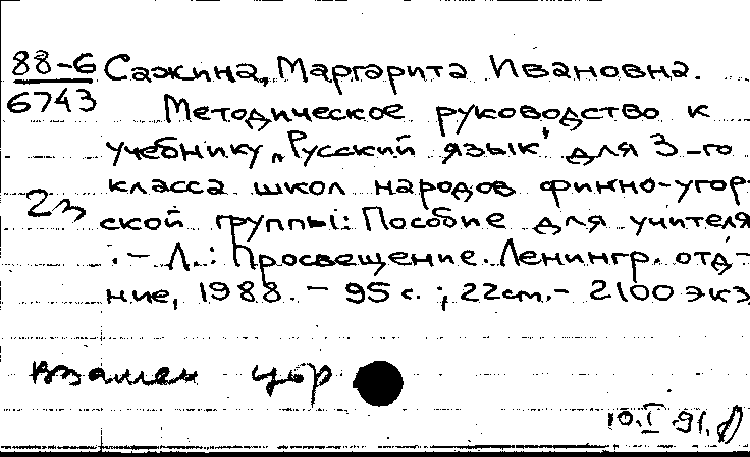 88-6 Сажина, Маргарита Ивановна.
6743 Методическое руководство к
учебнику „Русский язык" для 3-го
класса школ народов финно-угор-
2э
ской группы: Пособие для учителя
. – Л.: Просвещение. Ленингр. отд-
ние, 1988. – 95 с. ; 22 см. – 2100 экз
взамен
10.I 91.